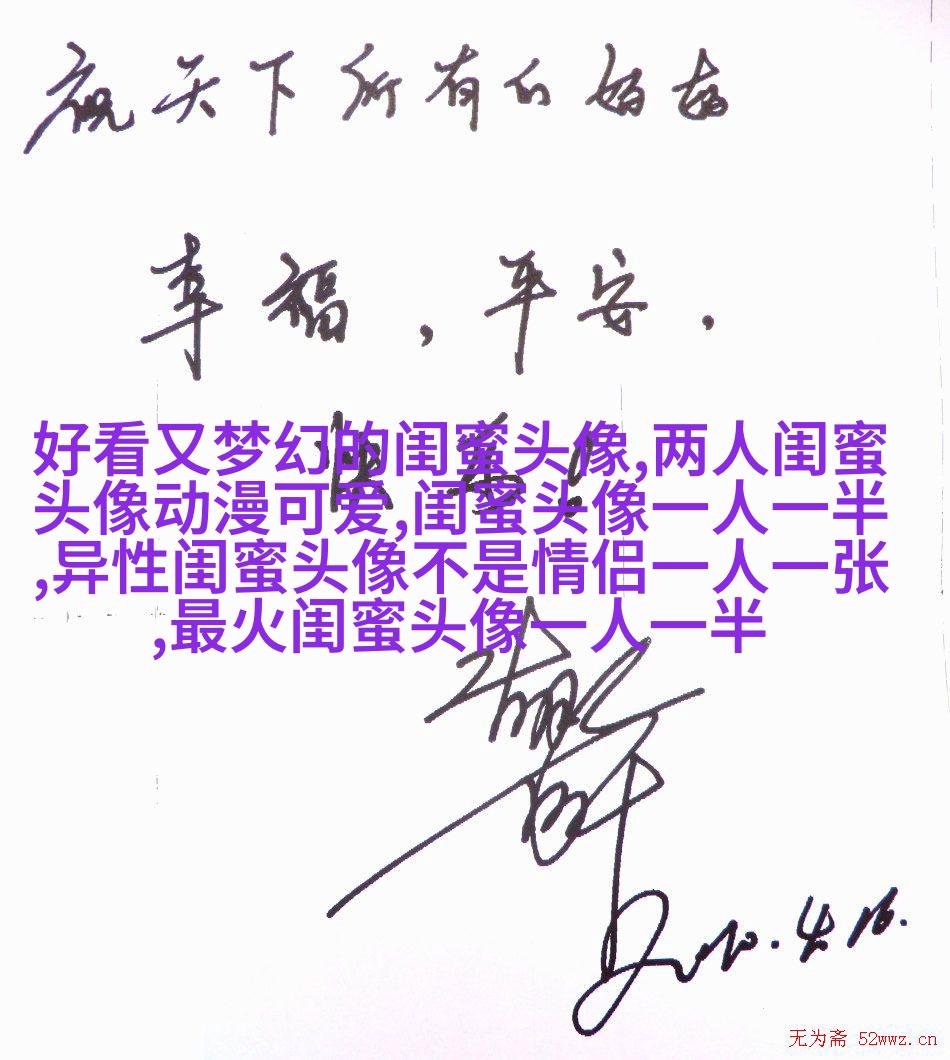 祝天下所有的妈妈
幸福，平安，
好看又梦幻的闺蜜头像,两人闺蜜
头像动漫可爱,闺蜜头像一人一半
,异性闺蜜头像不是情侣一人一张
,最火闺蜜头像一人一半
2010.4.16.
无为斋 52wwz.cn